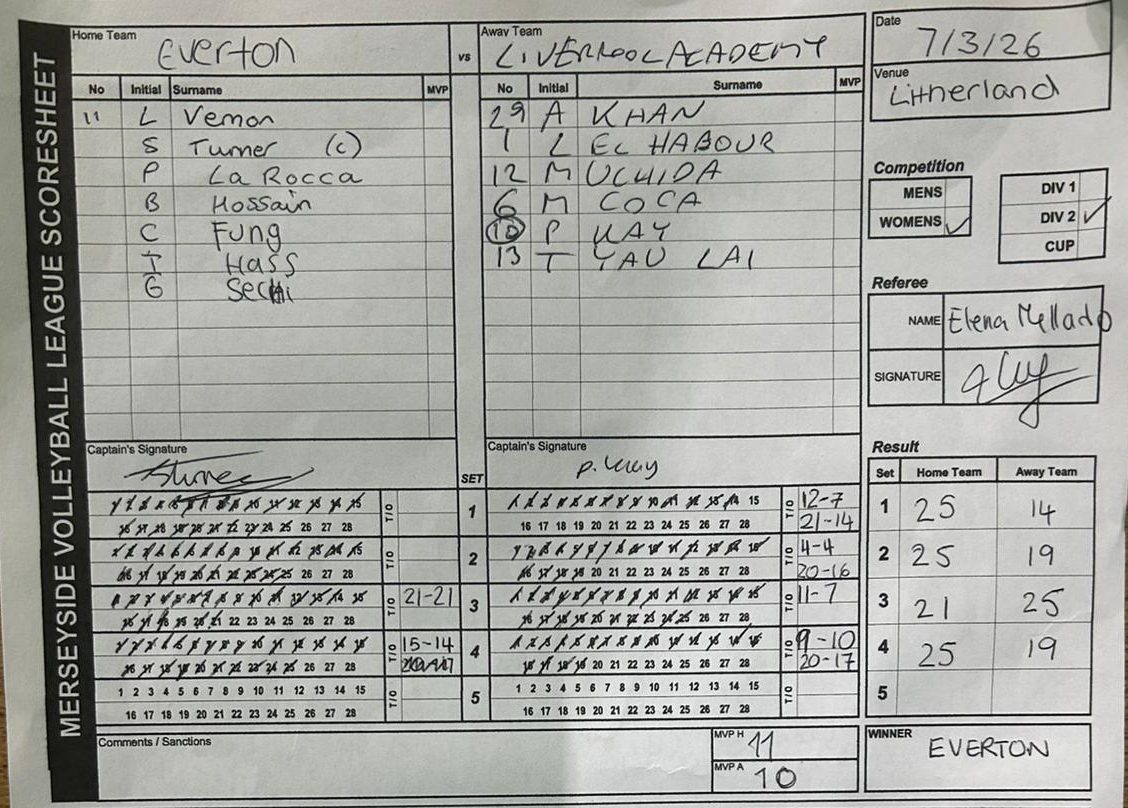 MERSEYSIDE VOLLEYBALL LEAGUE SCORESHEET
Home Team Everton vs Away Team LIVERPOOL ACADEMY
Date 7/3/26
Venue Litherland
No Initial Surname MVP
11 L Vernon
S Turner (c)
P La Rocca
B Hossain
C Fung
T Hass
G Sechi
No Initial Surname MVP
29 A KHAN
1 L EL HABOUR
12 M UCHIDA
6 M COCA
10 P KAY
13 T YAU LAI
Competition
MENS
WOMENS ✓
DIV 1
DIV 2 ✓
CUP
Referee
NAME Elena Mellado
SIGNATURE
Captain's Signature
Captain's Signature
P. Kay
SET
1 2 3 4 5 6 7 8 9 10 11 12 13 14 15 T/O 1 1 2 3 4 5 6 7 8 9 10 11 12 13 14 15 T/O 12-7
16 17 18 19 20 21 22 23 24 25 26 27 28 16 17 18 19 20 21 22 23 24 25 26 27 28 21-14
1 2 3 4 5 6 7 8 9 10 11 12 13 14 15 T/O 2 1 2 3 4 5 6 7 8 9 10 11 12 13 14 15 T/O 4-4
16 17 18 19 20 21 22 23 24 25 26 27 28 16 17 18 19 20 21 22 23 24 25 26 27 28 20-16
1 2 3 4 5 6 7 8 9 10 11 12 13 14 15 T/O 21-21 3 1 2 3 4 5 6 7 8 9 10 11 12 13 14 15 T/O 11-7
16 17 18 19 20 21 22 23 24 25 26 27 28 16 17 18 19 20 21 22 23 24 25 26 27 28
1 2 3 4 5 6 7 8 9 10 11 12 13 14 15 T/O 15-14 4 1 2 3 4 5 6 7 8 9 10 11 12 13 14 15 T/O 9-10
16 17 18 19 20 21 22 23 24 25 26 27 28 16 17 18 19 20 21 22 23 24 25 26 27 28 20-17
1 2 3 4 5 6 7 8 9 10 11 12 13 14 15 T/O 5 1 2 3 4 5 6 7 8 9 10 11 12 13 14 15 T/O
16 17 18 19 20 21 22 23 24 25 26 27 28 16 17 18 19 20 21 22 23 24 25 26 27 28
Result
Set Home Team Away Team
1 25 14
2 25 19
3 21 25
4 25 19
5
Comments / Sanctions
MVP H 11
MVP A 10
WINNER EVERTON